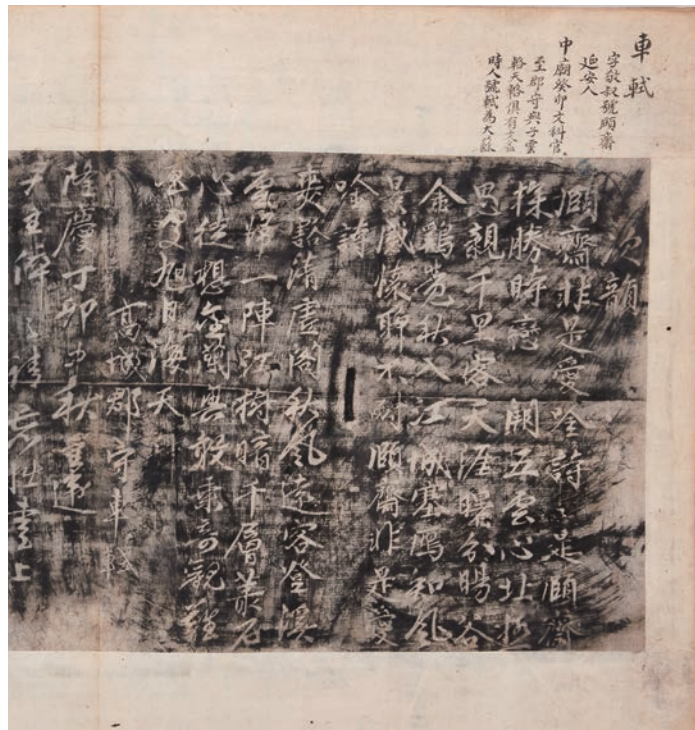 車軾
字敬叔號頤齋
延安人
中廟癸卯文科官
至郡守與子雲
輅天輅俱有文名
時人號軾為大蘇
次韻
頤齋非是愛吟詩〻是頤齋
探勝時戀 闕五雲心北拱
思親千里客天涯曙分暘谷
金鷄老秋入江城塞鴈知風
景感懷聊不耐頤齋非是愛
吟詩
爽豁清虛閣秋風遠客登溪
雲 一陣江樹暗千層叢石
心徒想金蘭興 乘奇觀難
旭日海天
高城郡守車軾
隆慶丁卯中秋重違
天王倅之請忘拙書上